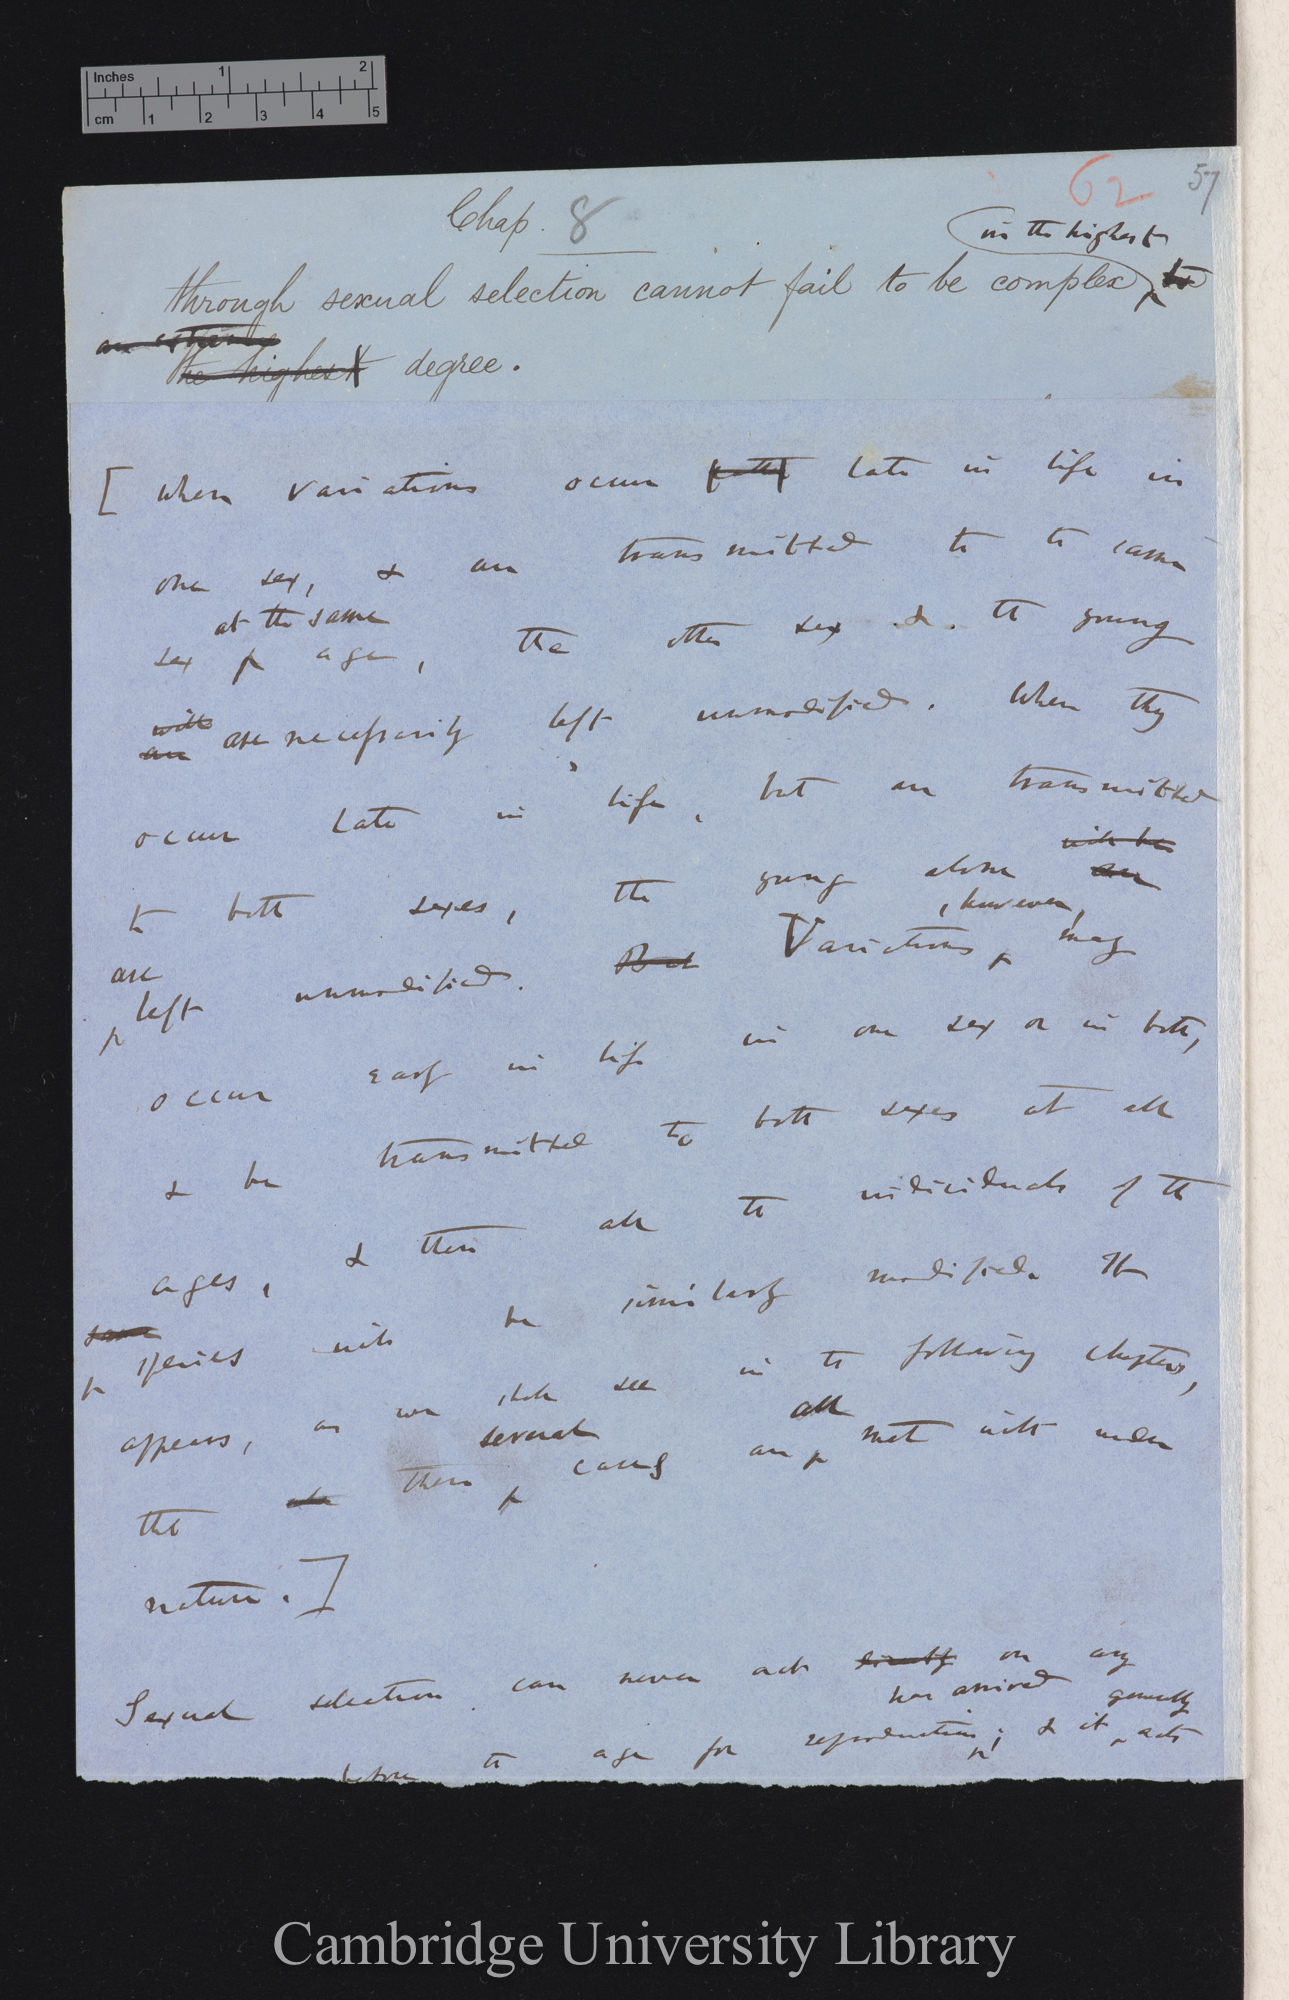 Inches 1 2
cm 1 2 3 4 5
62 57
Chap. 8
in the highest
through sexual selection cannot fail to be complex to
an extreme
the highest degree.
[ When variations occur late in life in
one sex, & are transmitted to the same
at the same
sex age, the other sex & the young
will
are are necessarily left unmodified. When they
occur late in life, but are transmitted
will be
to both sexes, the young alone are
, however,
are
left unmodified. But Variations may
occur early in life in one sex or in both,
& be transmitted to both sexes at all
ages, & then all the individuals of the
same
species will be similarly modified. It
appears, as we shall see in the following chapters,
several all
that all these cases are met with under
nature. ]
Sexual selection can never act directly on any
has arrived generally
before the age for reproduction; & it acts
Cambridge University Library